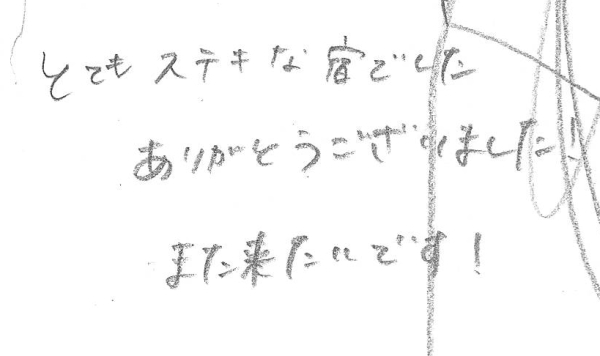 とてもステキな宿でした
ありがとうございました!
また来たいです!